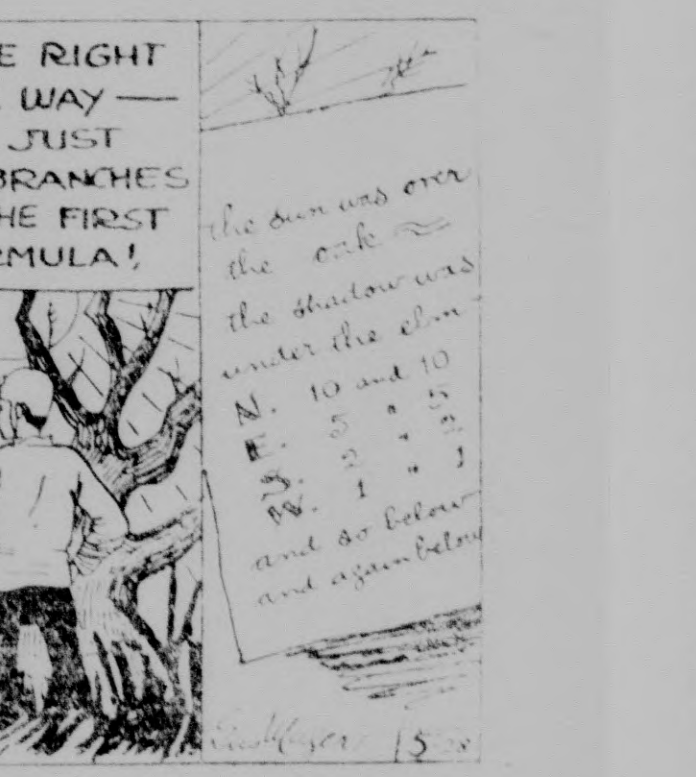 E RIGHT
WAY —
JUST
BRANCHES
HE FIRST
RMULA!
the sun was over
the oak
the shadow was
under the elm
N. 10 and 10
E. 5 " 5
S. 2 " 2
W. 1 " 1
and so below
and again below
15